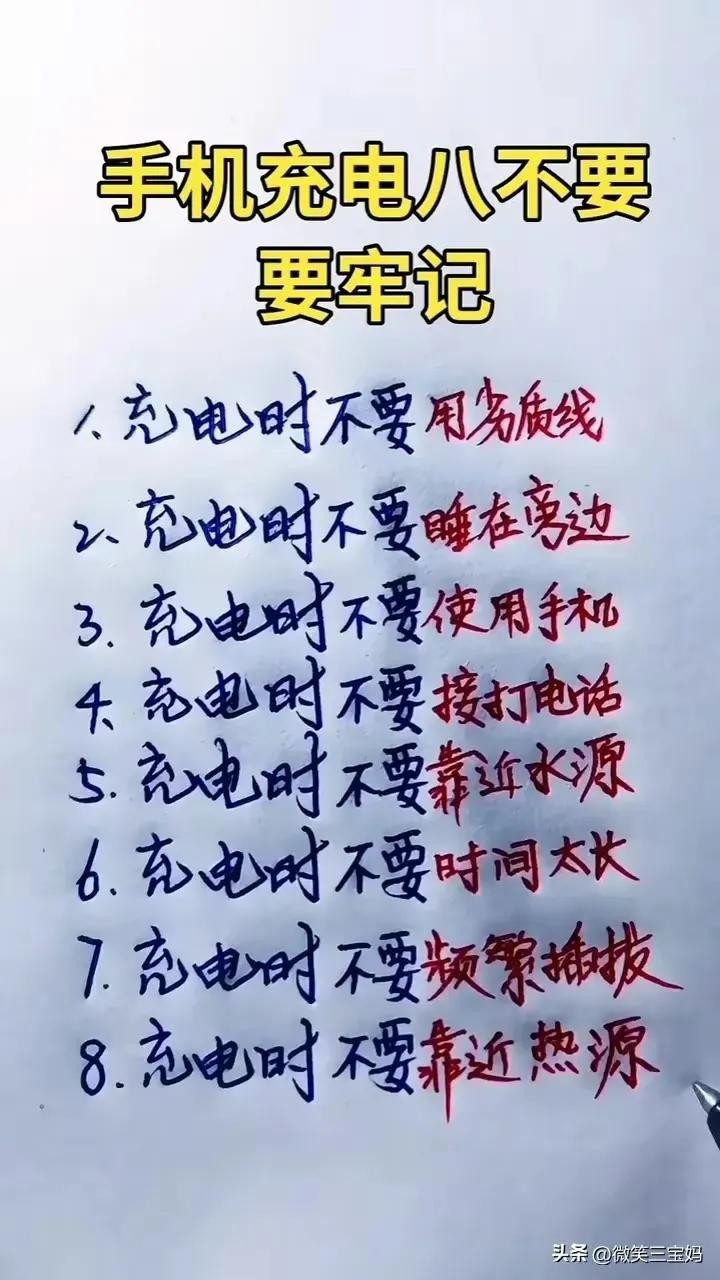 手机充电八不要
要牢记
1、充电时不要用劣质线
2、充电时不要睡在旁边
3.充电时不要使用手机
4、充电时不要接打电话
5.充电时不要靠近水源
6.充电时不要时间太长
7.充电时不要频繁插拔
8.充电时不要靠近热源
头条 @微笑三宝妈